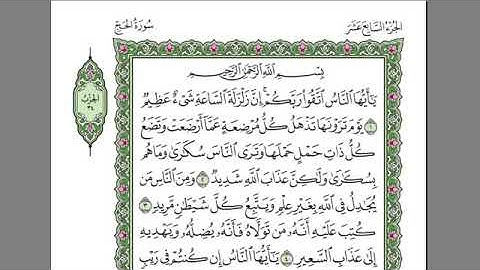 سورة الحج
الجزء السابع عشر
الحزب
٣٤
بِسْمِ اللَّهِ الرَّحْمَٰنِ الرَّحِيمِ
يَٰٓأَيُّهَا ٱلنَّاسُ ٱتَّقُوا۟ رَبَّكُمْ ۚ إِنَّ زَلْزَلَةَ ٱلسَّاعَةِ شَىْءٌ عَظِيمٌ
١ يَوْمَ تَرَوْنَهَا تَذْهَلُ كُلُّ مُرْضِعَةٍ عَمَّآ أَرْضَعَتْ وَتَضَعُ
كُلُّ ذَاتِ حَمْلٍ حَمْلَهَا وَتَرَى ٱلنَّاسَ سُكَٰرَىٰ وَمَا هُم
بِسُكَٰرَىٰ وَلَٰكِنَّ عَذَابَ ٱللَّهِ شَدِيدٌ ٢ وَمِنَ ٱلنَّاسِ مَن
يُجَٰدِلُ فِى ٱللَّهِ بِغَيْرِ عِلْمٍ وَيَتَّبِعُ كُلَّ شَيْطَٰنٍ مَّرِيدٍ ٣
كُتِبَ عَلَيْهِ أَنَّهُۥ مَن تَوَلَّاهُ فَأَنَّهُۥ يُضِلُّهُۥ وَيَهْدِيهِ
إِلَىٰ عَذَابِ ٱلسَّعِيرِ ٤ يَٰٓأَيُّهَا ٱلنَّاسُ إِن كُنتُمْ فِى رَيْبٍ